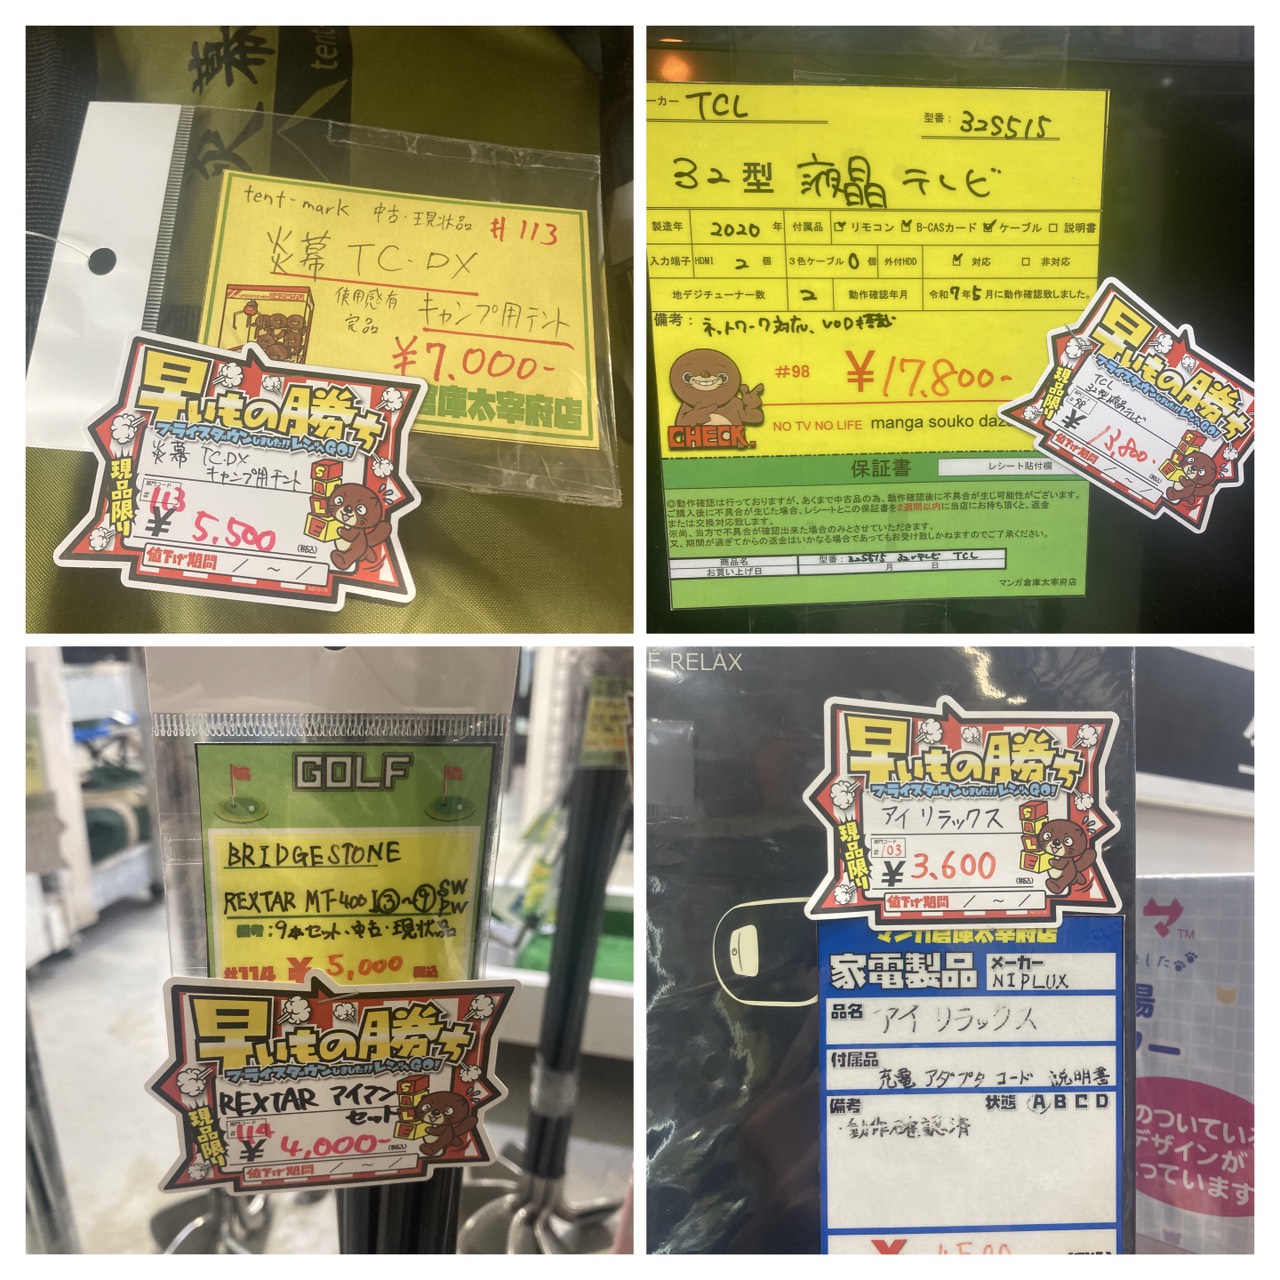 炎幕
tent
tent-mark 中古・現状品 #113
炎幕 TC-DX
使用感有
完品
キャンプ用テント
¥7,000-
倉庫太宰府店
早いもの勝ち
プライスダウンしました!!レジへGO!
炎幕 TC-DX
キャンプ用テント
現品限り
SALE
部門コード
#113
¥5,500
(税込)
値下げ期間 / ~ /
ーカー TCL
型番: 32S515
32型 液晶テレビ
製造年 2020年 付属品 ☑リモコン ☑B-CASカード ☑ケーブル □説明書
入力端子 HDMI 2個 3色ケーブル 0個 外付HDD ☑対応 □非対応
地デジチューナー数 2 動作確認年月 令和7年5月に動作確認致しました。
備考: ネットワーク対応、VOD搭載
#98 ¥17,800-
CHECK.
NO TV NO LIFE manga souko daz
保証書 レシート貼付欄
◎動作確認は行っておりますが、あくまで中古品の為、動作確認後に不具合が生じ可能性がございます。
ご購入後に不具合が生じた場合、レシートとこの保証書を2週間以内に当店にお持ち頂くと、返金
または交換対応致します。
※尚、当方で不具合が確認出来た場合のみとさせていただきます。
又、期間が過ぎてからの返金はいかなる場合であってもお受け致しかねますのでご了承ください。
商品名 型番:32S515 32インテレビ TCL
お買い上げ日 月 日
マンガ倉庫太宰府店
早いもの勝ち
プライスダウンしました!!レジへGO!
TCL
32型液晶テレビ
現品限り
SALE
#98
¥13,800-
値下げ期間 / ~ /
GOLF
BRIDGESTONE
REXTAR MT-400 I③~⑨ SW PW
備考:9本セット、中古・現状品
#114 ¥5,000 税込
早いもの勝ち
プライスダウンしました!!レジへGO!
REXTAR アイアン
セット
現品限り
SALE
部門コード
#114
¥4,000-
(税込)
値下げ期間 / ~ /
E RELAX
早いもの勝ち
プライスダウンしました!!レジへGO!
アイリラックス
現品限り
SALE
部門コード
#103
¥3,600
(税込)
値下げ期間 / ~ /
マンガ倉庫太宰府店
家電製品 メーカー
NIPLUX
品名
アイリラックス
付属品
充電アダプタコード 説明書
備考 状態 ⒶBCD
・動作確認済
¥4500
TM
のついている
デザインが
っています